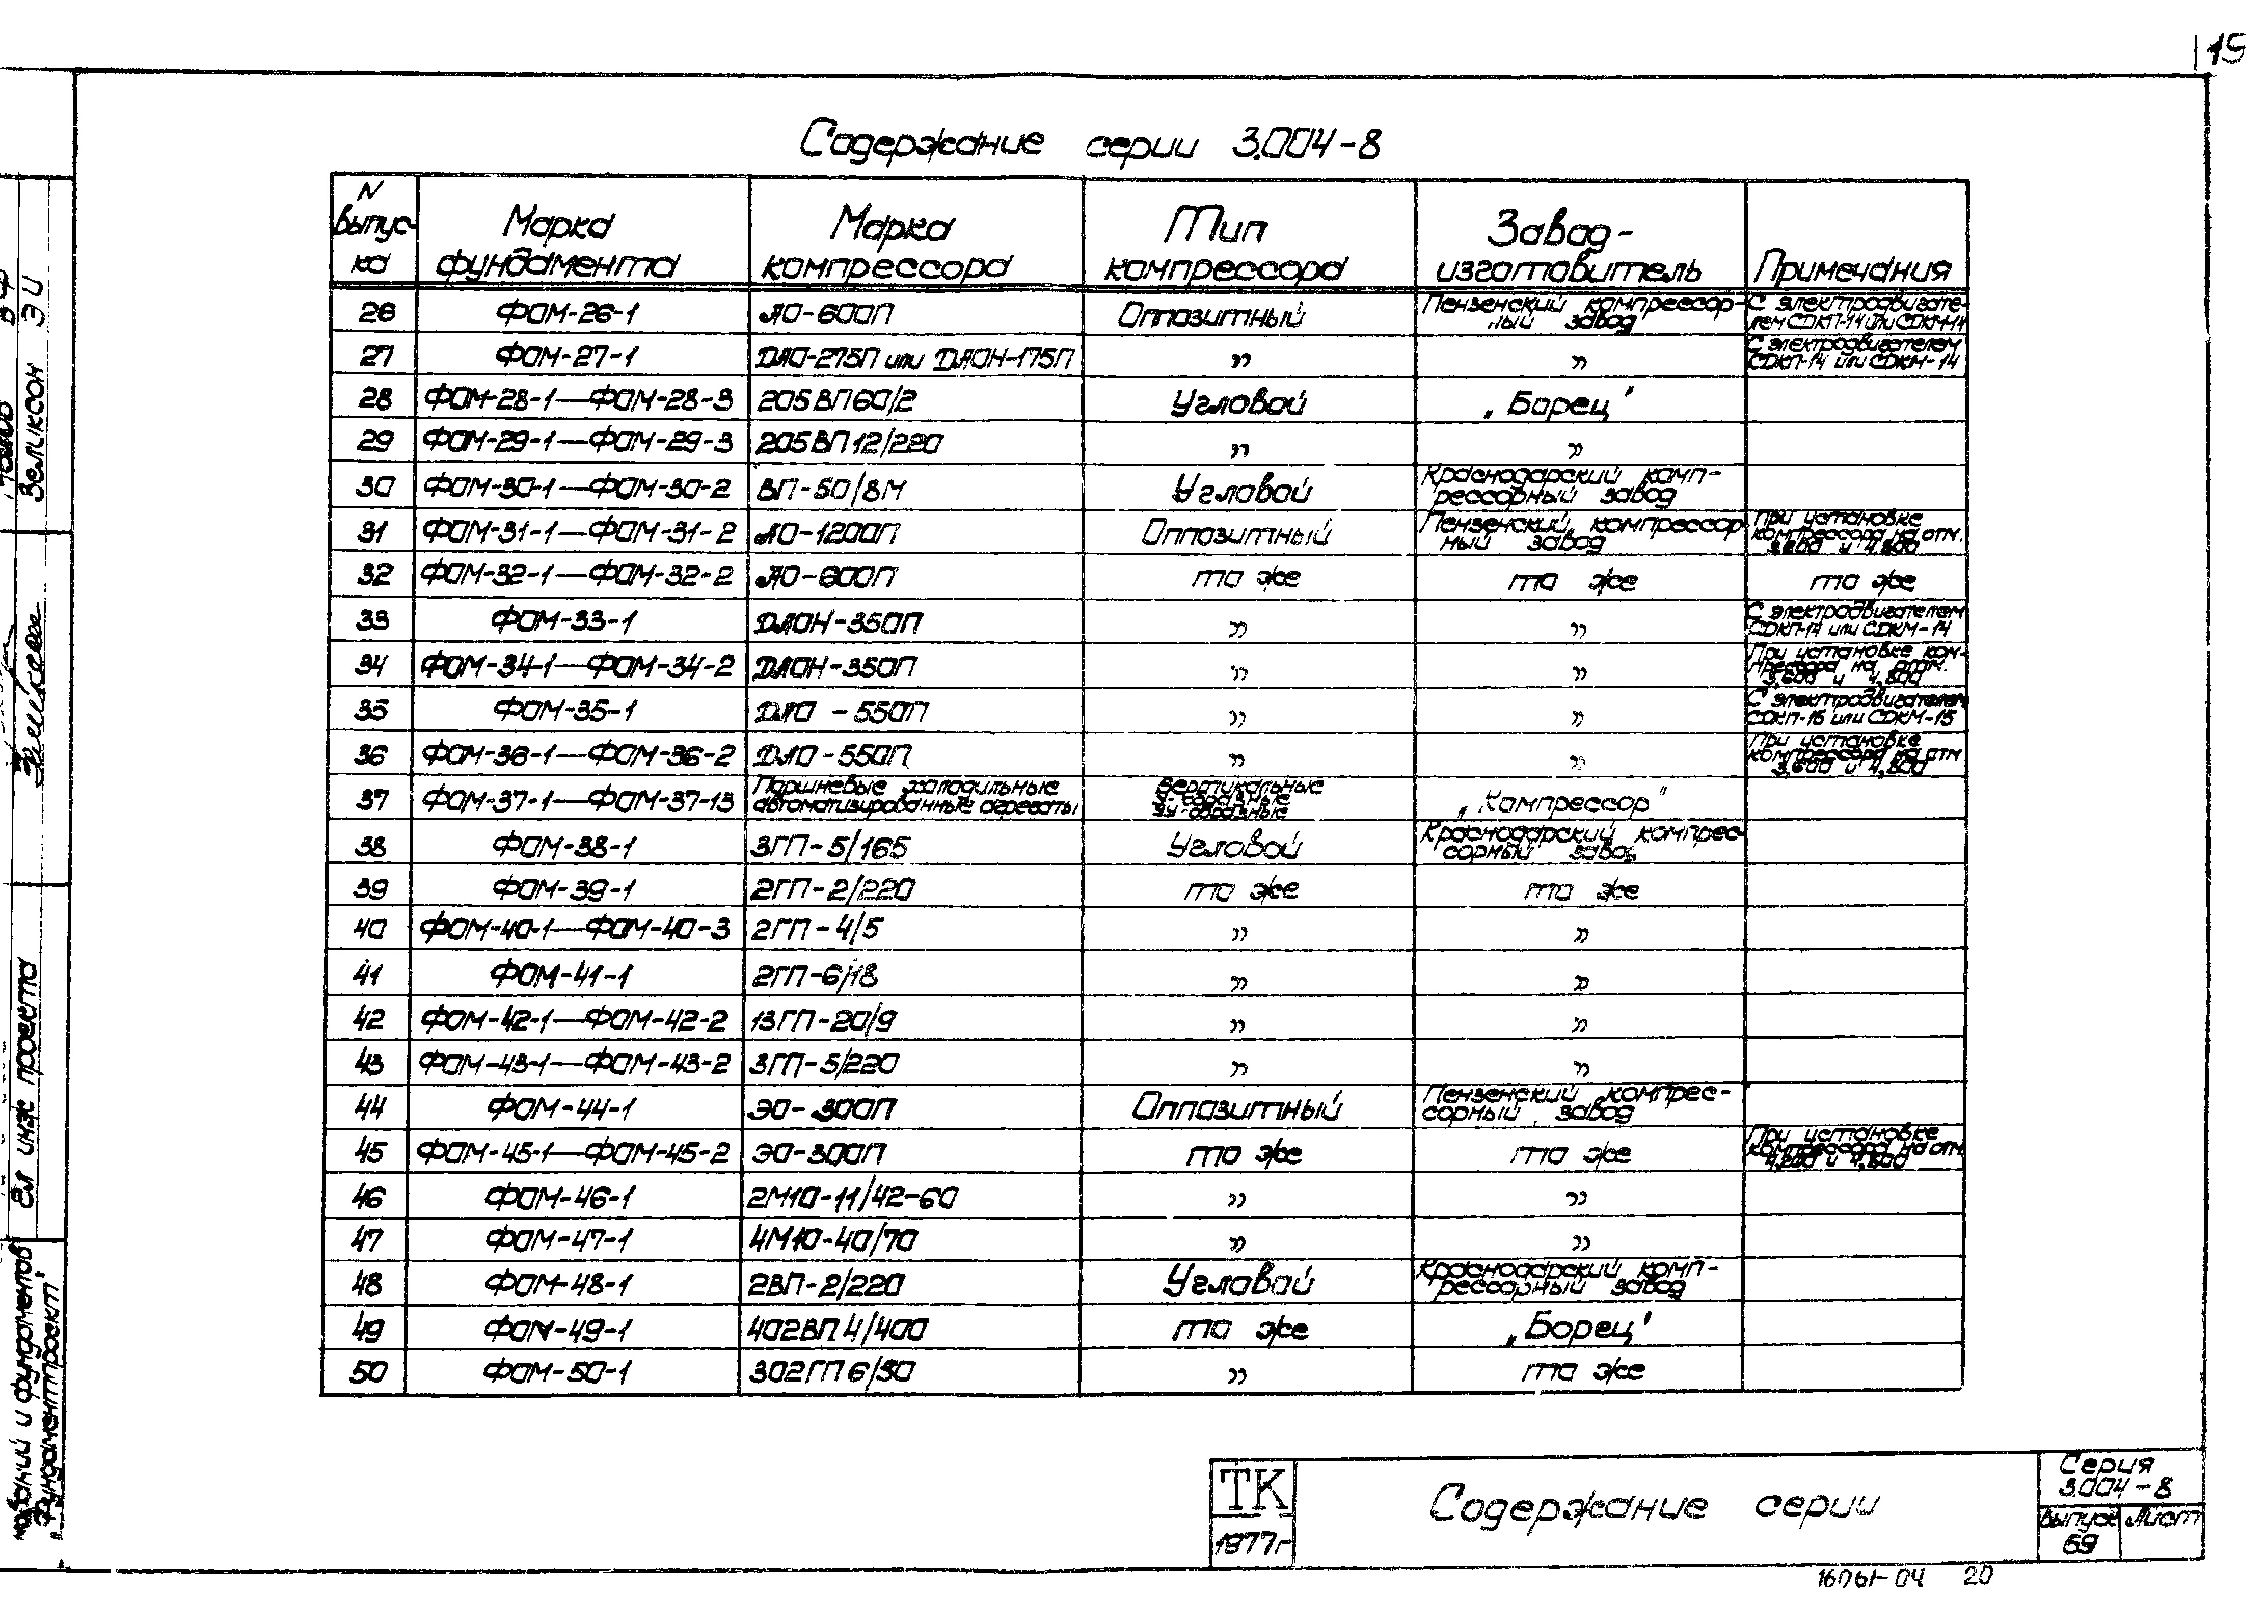 19
Содержание серии 3.004-8
N выпус-ка | Марка фундамента | Марка компрессора | Тип компрессора | Завод-изготовитель | Примечания
26 | ФОМ-26-1 | АО-600П | Оппозитный | Пензенский компрессор-ный завод | С электродвигате-лем СДКП-14 или СДКМ-14
27 | ФОМ-27-1 | ДАО-275П или ДАОН-175П | " | " | С электродвигателем СДКП-14 или СДКМ-14
28 | ФОМ-28-1—ФОМ-28-3 | 205ВП60/2 | Угловой | „Борец"
29 | ФОМ-29-1—ФОМ-29-3 | 205ВП12/220 | " | "
30 | ФОМ-30-1—ФОМ-30-2 | ВП-50/8М | Угловой | Краснодарский комп-рессорный завод
31 | ФОМ-31-1—ФОМ-31-2 | АО-1200П | Оппозитный | Пензенский компрессор ный завод | При установке компрессора на отм. и 4,800
32 | ФОМ-32-1—ФОМ-32-2 | АО-600П | то же | то же | то же
33 | ФОМ-33-1 | ДАОН-350П | " | " | С электродвигателем СДКП-14 или СДКМ-14
34 | ФОМ-34-1—ФОМ-34-2 | ДАОН-350П | " | " | При установке ком-прессора на отм. 3,600 и 4,800
35 | ФОМ-35-1 | ДАО-550П | " | " | С электродвигателем СДКП-15 или СДКМ-15
36 | ФОМ-36-1—ФОМ-36-2 | ДАО-550П | " | " | При установке компрессора на отм 3,600 и 4,800
37 | ФОМ-37-1—ФОМ-37-13 | Поршневые холодильные автоматизированные агрегаты | Вертикальные У-образные УУ-образные | „Компрессор"
38 | ФОМ-38-1 | 3ГП-5/165 | Угловой | Краснодарский компрес-сорный завод
39 | ФОМ-39-1 | 2ГП-2/220 | то же | то же
40 | ФОМ-40-1—ФОМ-40-3 | 2ГП-4/5 | " | "
41 | ФОМ-41-1 | 2ГП-6/18 | " | "
42 | ФОМ-42-1—ФОМ-42-2 | 13ГП-20/9 | " | "
43 | ФОМ-43-1—ФОМ-43-2 | 3ГП-5/220 | " | "
44 | ФОМ-44-1 | ЭО-300П | Оппозитный | Пензенский компрес-сорный завод
45 | ФОМ-45-1—ФОМ-45-2 | ЭО-300П | то же | то же | При установке компрессора на отм 4,200 и 4,800
46 | ФОМ-46-1 | 2М10-11/42-60 | " | "
47 | ФОМ-47-1 | 4М10-40/70 | " | "
48 | ФОМ-48-1 | 2ВП-2/220 | Угловой | Краснодарский комп-рессорный завод
49 | ФОМ-49-1 | 402ВП4/400 | то же | „Борец"
50 | ФОМ-50-1 | 302ГП6/30 | " | то же
ТК
1977г
Содержание серии
Серия
3.004-8
Выпуск Лист
69
16061-04 20
Зеликсон Э И
Гл инж проекта
ований и фундаментов
„Фундаментпроект"